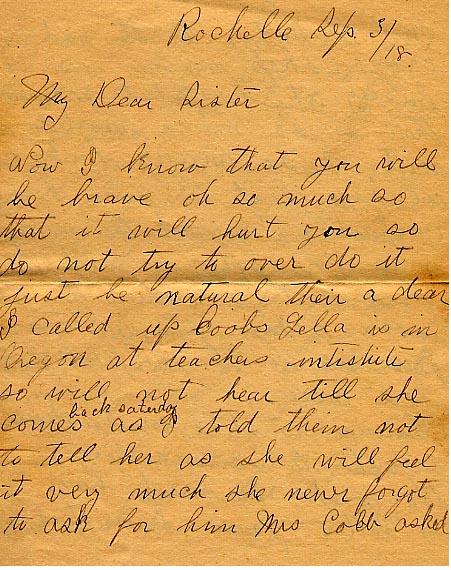 Rochelle Sep. 3/18.
My Dear Sister
Now I know that you will
be brave oh so much so
that it will hurt you so
do not try to over do it
just be natural their a dear
I called up Cobbs Lella is in
Oregon at teachers intistute
so will not hear till she
comes back saturday as I told them not
to tell her as she will feel
it very much she never forgot
to ask for him Mrs Cobb asked